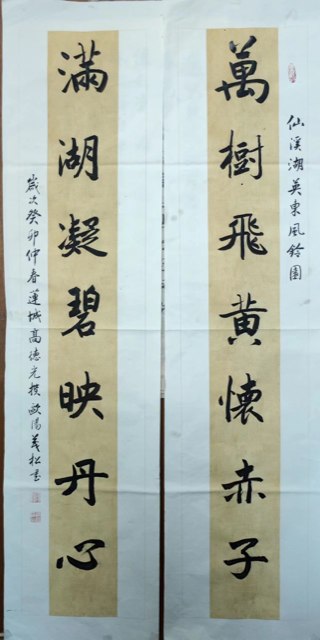 仙溪湖英東風鈴園
萬樹飛黄懷赤子
滿湖凝碧映丹心
歲次癸卯仲春蓮城高德元撰歐陽義松書